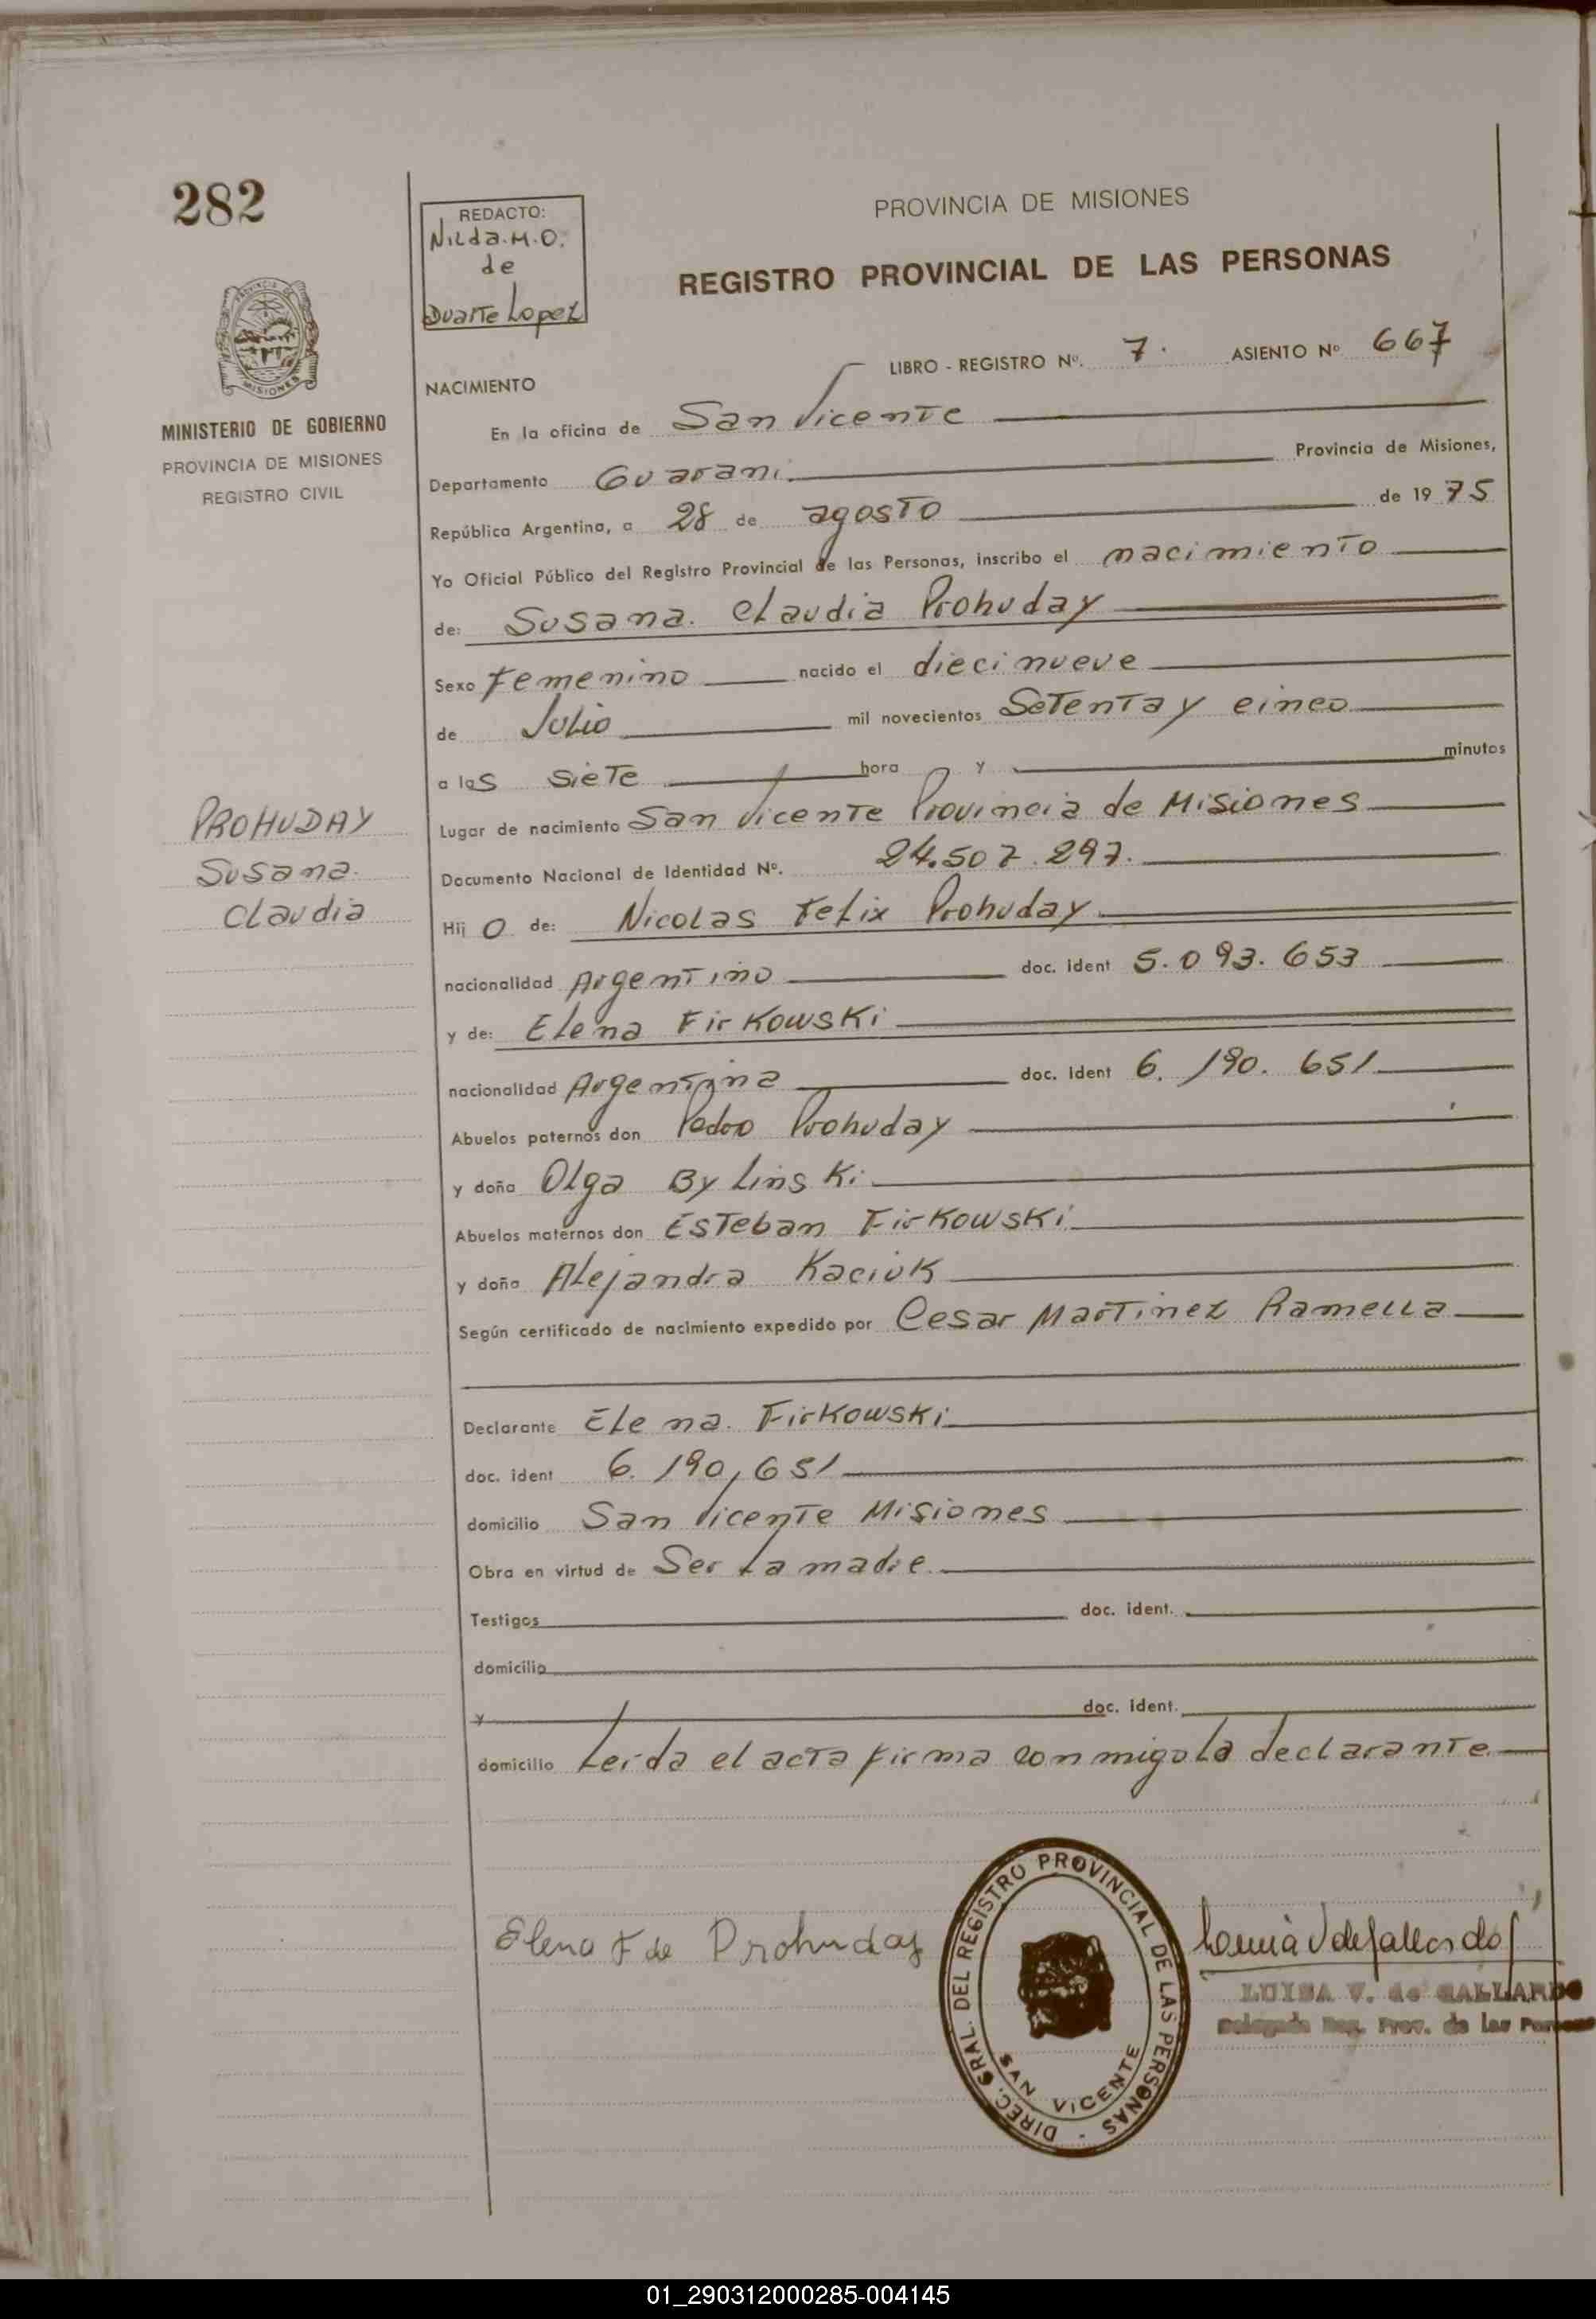 282
REDACTO:
Nilda.M.O.
de
Duarte Lopez
PROVINCIA DE MISIONES
REGISTRO PROVINCIAL DE LAS PERSONAS
PROVINCIA DE
MISIONES
MINISTERIO DE GOBIERNO
PROVINCIA DE MISIONES
REGISTRO CIVIL
LIBRO - REGISTRO Nº. 7. ASIENTO Nº 667
NACIMIENTO
En la oficina de San Vicente
Departamento Guarani Provincia de Misiones,
República Argentina, a 28 de agosto de 1975
Yo Oficial Público del Registro Provincial de las Personas, inscribo el nacimiento
de: Susana. Claudia Prohuday
Sexo Femenino nacido el diecinueve
de Julio mil novecientos Setenta y cinco
a las siete hora y minutos
PROHUDAY
Susana.
Claudia
Lugar de nacimiento San Vicente Provincia de Misiones
Documento Nacional de Identidad Nº. 24.507.297.
Hij o de: Nicolas Felix Prohuday
nacionalidad Argentino doc. ident 5.093.653
y de: Elena Firkowski
nacionalidad Argentina doc. ident 6.190.651
Abuelos paternos don Pedro Prohuday
y doña Olga Bylinski
Abuelos maternos don Esteban Firkowski
y doña Alejandra Kaciuk
Según certificado de nacimiento expedido por Cesar Martinez Ramella
Declarante Elena. Firkowski
doc. ident 6.190,651
domicilio San Vicente Misiones
Obra en virtud de Ser La madre.
Testigos doc. ident.
domicilio
y doc. ident.
domicilio Leida el acta firma conmigo la declarante
Elena F de Prohuday
DIREC. GRAL. DEL REGISTRO PROVINCIAL DE LAS PERSONAS -
SAN VICENTE
LUISA V. de GALLARDO
Delegada Reg. Prov. de las Personas
01_290312000285-004145